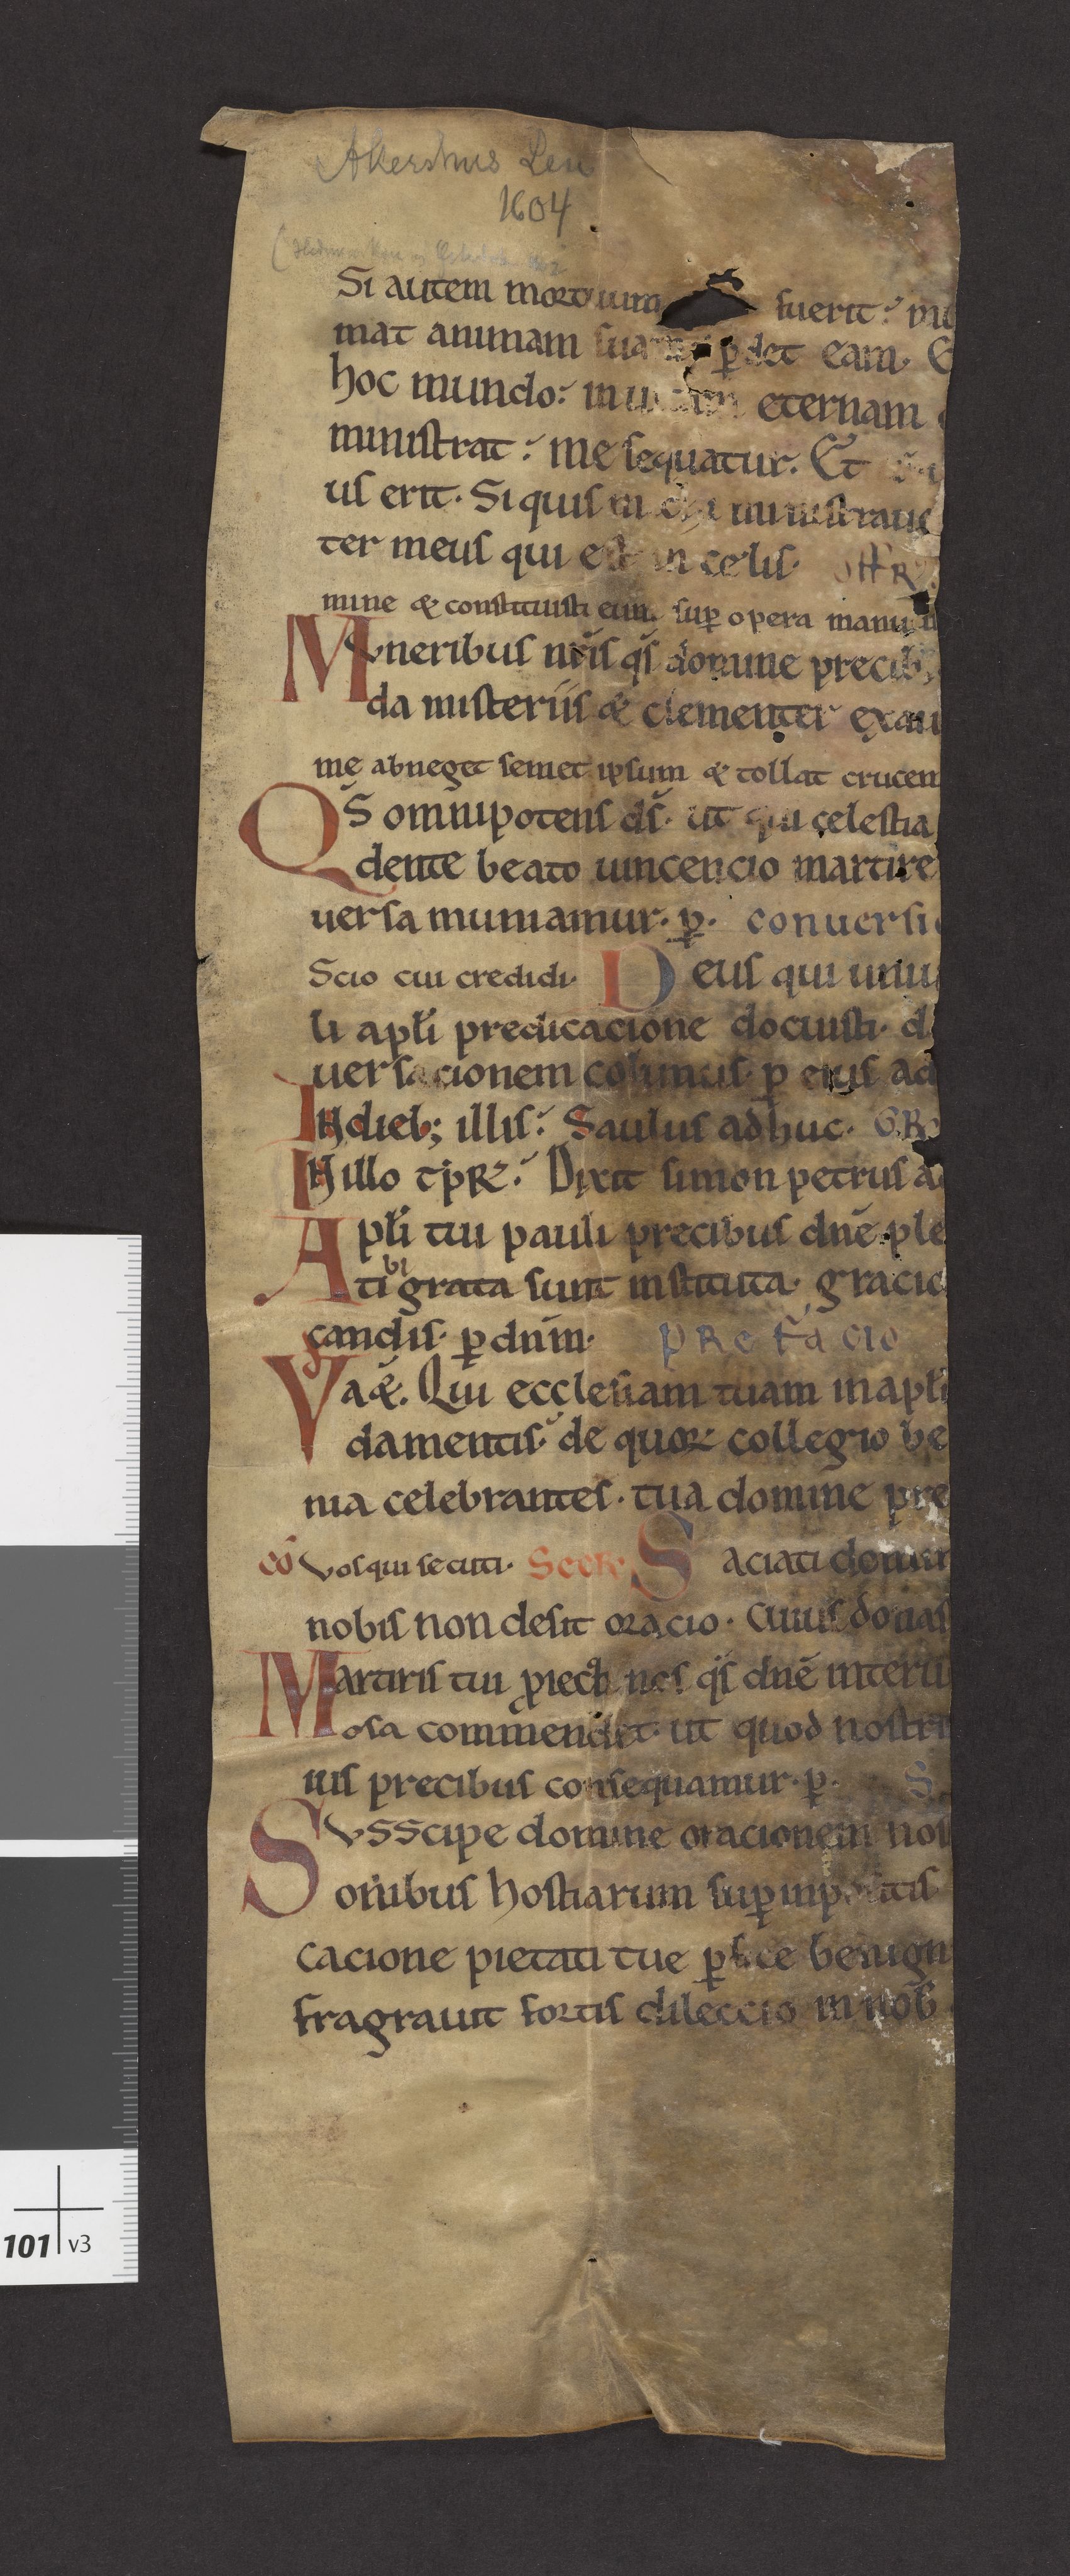 Akershus Len
1604
Si autem mortuum fuerit: mu
mat animam sua ꝑdet eam. E
hoc mundo: in uitam eternam
ministrat: me sequatur. Et
us erit. Si quis michi ministraue
ter meus qui est in celis. OFFR
mine & constituisti eum suꝑ opera manuu
Mvneribus nr̄is qs̄ domine precib;
da misteriis & clementer exau
me abneget semet ipsum & tollat crucem
Qs̄ omnipotens ds̄. ut qui celestia
dente beato uincencio martire
uersa muniamur. ꝑ. conuersio
Scio cui credidi. Deus qui uniu
li apl̄i predicacione docuisti. d
uersacionem colimus. ꝑ eius ad
IN dieb; illis: Saulus adhuc. GR
IN illo tꝑR: Dixit simon petrus a
Apl̄i tui pauli precibus dnē ple
tibi grata sunt instituta. gracio
candis. ꝑ dnm̄. PRefacio
VD aę. Qui ecclesiam tuam in apl̄i
damentis. de quoꝝ collegio be
nia celebrantes. tua domine pre
cō Vos qui secuti. Saciati domin
nobis non desit oracio. Cuius donas
Martiris tui precib nos qs̄ dnē interu
osa commendet. ut quod nostri
iis precibus consequamur. ꝑ. S
Svsscipe domine oracionem nos
onibus hostiarum suꝑinpositis
cacione pietati tue ꝑfice benign
fragrauit fortis dileccio in nob̄